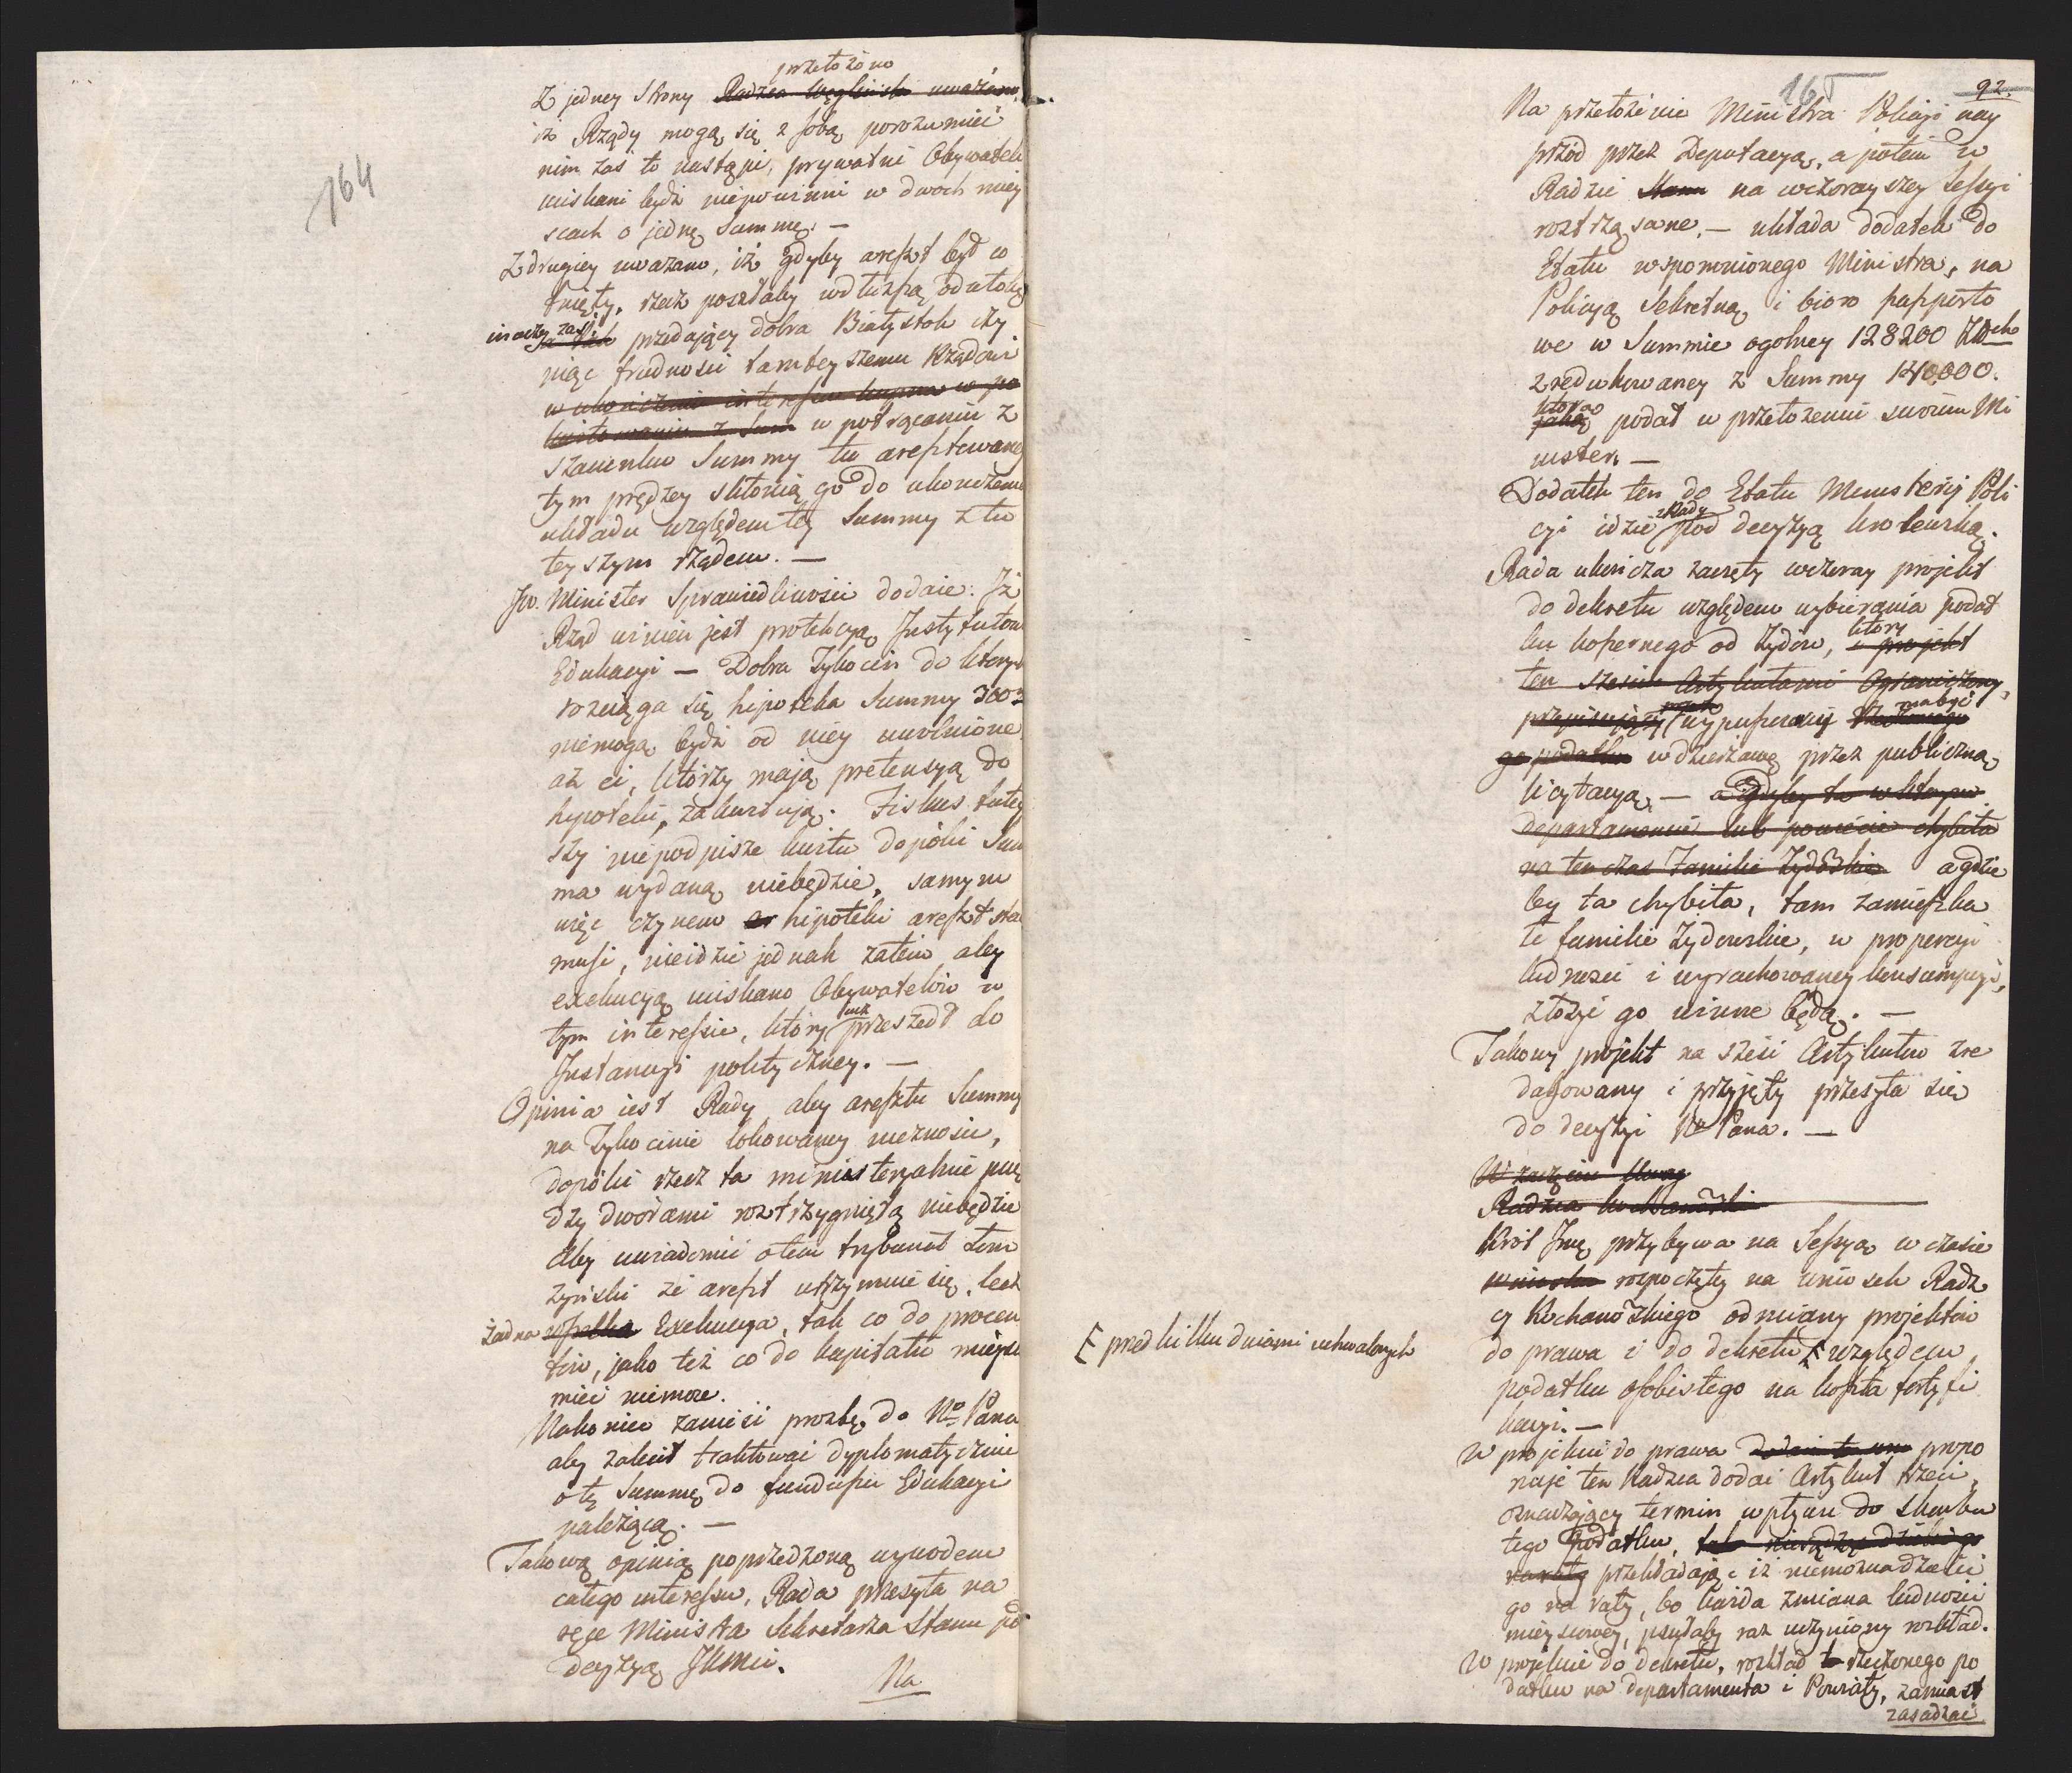 164
przełożono
Z jedney Strony Radzca Węgliński uważano,
iż Rządy mogą się z sobą porozumieć
nim zaś to nastąpi, prywatni Obywatele
uiskani bydź niepowinni w dwoch miey
scach o jednę Summę. —
Z drugiey uważano, iż gdyby areszt był co
fnięty, rzecz poszłaby w dłuzszą odwłokę
inaczey zaś przedający dobra Białystok czy
niąc trudności tamteyszemu Rządowi
w ukończeniu interessu kupna w po
w potrącaniu z
szacunku Summy tu aresztowaney
tym prędzey skłonią go do ukończenia
układu względem tey Summy z tu
teyszym rządem. —
JW. Minister Sprawiedliwości dodaie: Iż
Rząd winien jest protekcyą Instytutom
Edukacyi — Dobra Tykocin do ktorych
rozciąga się hipoteka Summy 300
niemogą bydź od niey uwolnione
aż ci, którzy mają pretensyą do
hypoteki, zakwitują. Fiskus tutey
szy niepodpisze kwitu dopóki Sum
ma wydaną niebędzie, samym
więc czynem hipoteki areszt stać
musi, nieidzie jednak zatem aby
exekucyą uiskano Obywatelów w
tym interessie, który już przeszedł do
Instancyi polityczney. —
Opinia iest Rady aby aresztu Summy
na Tykocinie lokowaney nieznosić,
dopóki rzecz ta ministeryalnie mię
dzy dworami roztrzygniętą niebędzie
Aby uwiadomić otem trybunał Łom
żyński że areszt utrzymuie się, lecz
żadna wszelka Exekucya, tak co do procen
tów, jako też co do kapitału mieysca
mieć niemoże.
Nakoniec zanieść prozbę do No Pana
aby zalecił traktować dyplomatycznie
o tę Summę do funduszu Edukacyi
należącą. —
Takową opinię poprzedzoną wywodem
całego interessu, Rada przesyła na
ręce Ministra Sekretarza Stanu pod
decyzyą JKMci.
Na
165
92.
Na przełożenie Ministra Policyi nay
przód przez Deputacyą, a potem w
Radzie Stanu na wczorayszey Sessyi
roztrząsane, — układa dodatek do
Etatu wspomnionego Ministra, na
Policyą Sekretną i bioro paszporto
we w Summie ogolney 128200 Złch
zredukowaney z Summy 140,000.
którą
jaką podał w przełożeniu swoim Mi
nister. —
Dodatek ten do Etatu Ministerij Poli
cyi idzie z Rady pod decyzyą krolewską.
Rada ukończa zaczęty wczoray projekt
do dekretu względem wybierania podat
ku koszernego od Żydów, który w projekt
ten sześcią Artykułami Ograniczony,
przepisujący wypuszczony ma być rzeczonego
go podatku w dzierzawę przez publiczną
licytacyą, — a gdyby ta w którym
departamencie lub powiecie chybiła
na ten czas Familie Żydowskie a gdzie
by ta chybiła, tam zamieszka
łe familie Żydowskie, w proporcyi
ludności i wyrachowaney konsumpcyi,
złożyć go winne będą. —
Takowy projekt na sześć Artykułow zre
dagowany i przyjęty przesyła się
do decyzyi No Pana. —
W zaczęciu
Radzca Kochanowski
Król Jmć przybywa na Sessyą w czasie
wniosku rozpoczętey na wniosek Radz
cy Kochanowskiego odmiany projektów
do prawa i do dekretu Ƹ względem
Ƹ przed kilku dniami uchwalonych
podatku osobistego na koszta fortyfi
kacyi. —
W projekcie do prawa propo
nuje ten Radzca dodać Artykuł trzeci,
oznaczający termin wpływu do Skarbu
tego Podatku,
na raty przekładając iż niemożna dzielić
go na raty, bo każda zmiana ludności
mieyscowey, psułaby raz uczyniony rozkład.
W projekcie do dekretu, rozkład rzeczonego po
datku na departamenta i Powiaty, zamiast
zasadzać